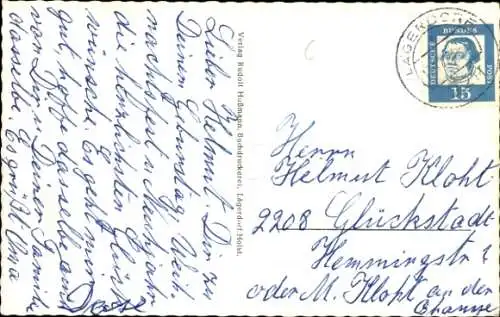 Lieber Helmut. Dir zu
Deinem Geburtstag, Weih-
nachtsfest u. Neujahr
die herzlichsten Glück-
wünsche. Es geht mir
gut, hoffe dasselbe auch
von Dir u. Deiner Familie
dasselbe. Es grüßt Oma
Verlag Rudolf Hußmann, Buchdruckerei, Lägerdorf-Holst.
LÄGERDORF
DEUTSCHE BUNDESPOST
15
Herrn
Helmut Kloht
2208 Glückstadt
Hemmingstr
oder M. Kloht an der
Chaussee